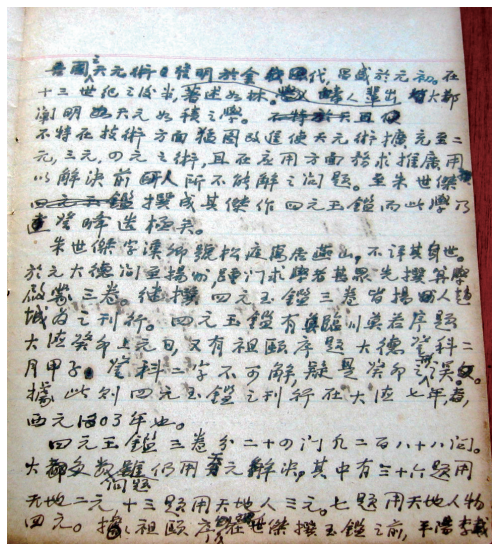 吾國之天元術發明於金代,昌盛於元初。在
十三世紀之後半,著述如林。大都
闡明天元如積之學。
不特在技術方面猛圖改進使天元術擴充至二
元,三元,四元之術,且在應用方面務求推廣用
以解決前人所不能解之問題。至朱世傑
撰成其傑作四元玉鑑而此學乃
登峰造極矣。
朱世傑字漢卿號松庭寓居燕山,不詳其身世。
於元大德間至揚州,踵門求學者甚眾先撰算學
啟蒙三卷。繼撰四元玉鑑三卷皆揚州人趙
城為之刊行。四元玉鑑有臨川莫若序題
大德癸卯上元日,又有祖頤序題大德癸科二
月甲子。癸科二字不可解,疑是癸卯之誤。
據此則四元玉鑑之刊行在大德七年,
西元1303年也。
四元玉鑑三卷分二十四門凡二百八十八問。
大多數問題仍用天元解決,其中有三十六題用
天地二元,十三題用天地人三元。七題用天地人物
四元。據祖頤序在世傑撰玉鑑之前,平陽李